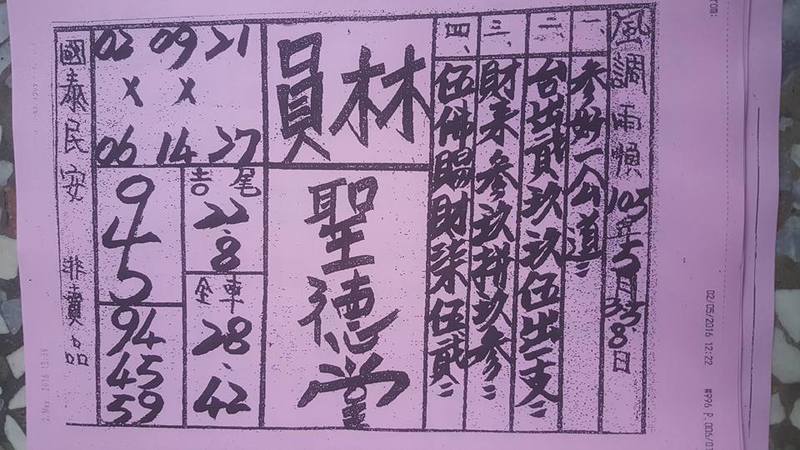 風調雨順 105年5月3.5.8日
一、參妙一公道
二、台出貳玖玖伍出一支
三、財来參玖拼玖參
四、伍佛賜財柒伍貳
員林
聖德堂
02 09 21
x x
06 14 27
吉尾
22.8
全車
28.42
9
4
5
94
45
59
國泰民安 非賣品
02/05/2016 12:22 #996